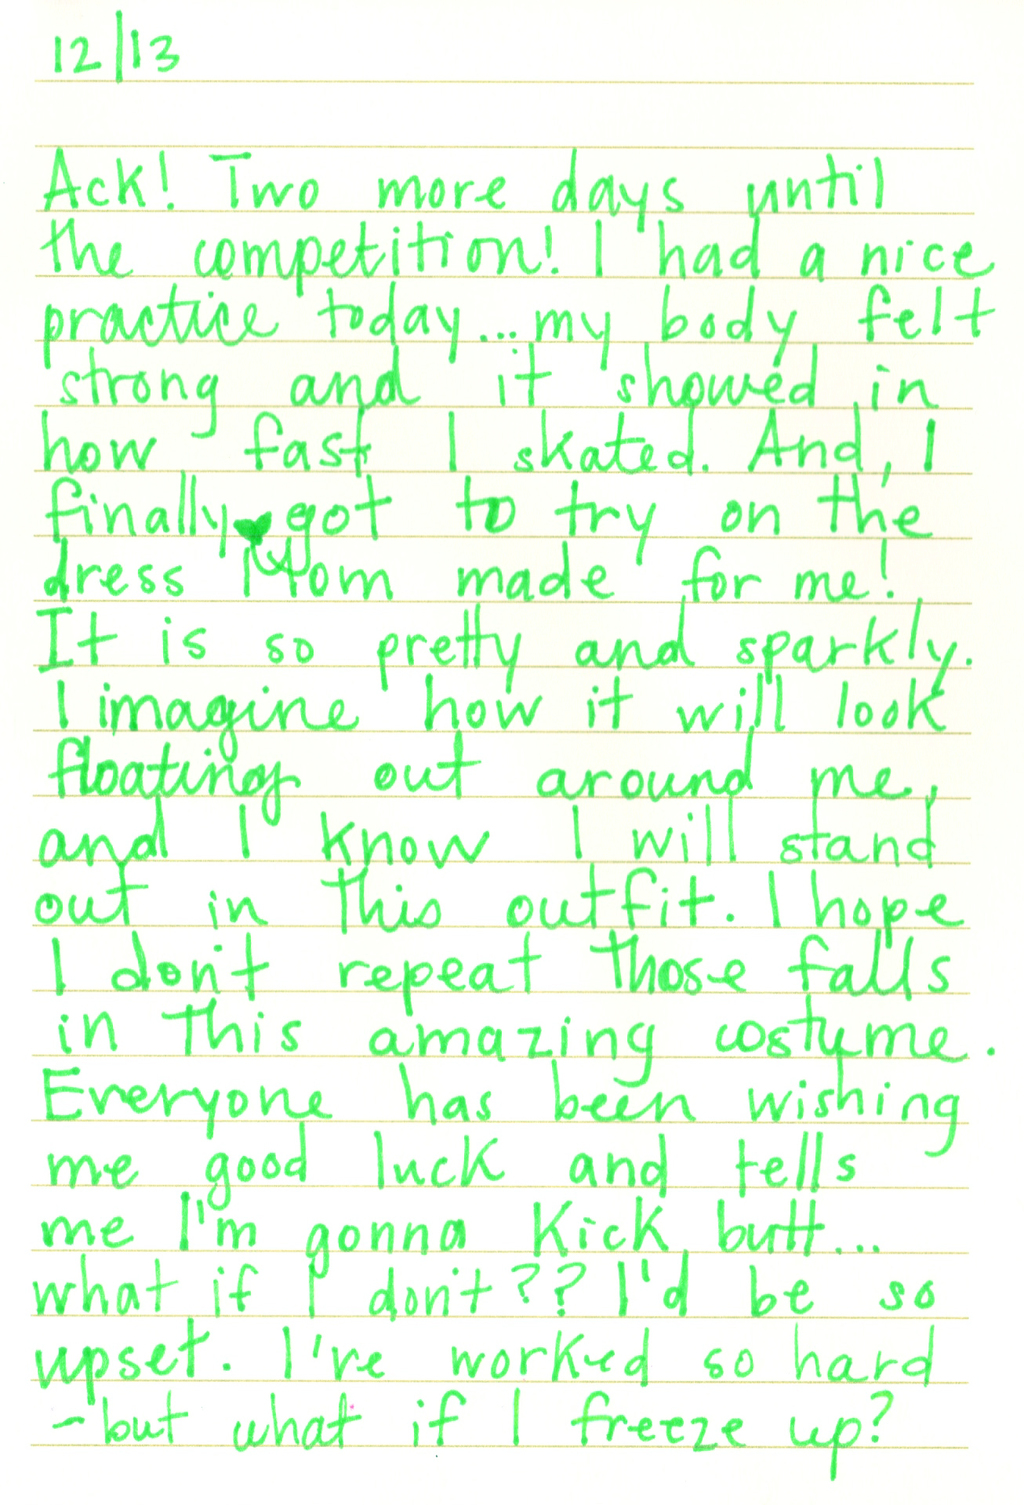 12/13
Ack! Two more days until
the competition! I had a nice
practice today... my body felt
strong and it showed in
how fast I skated. And, I
finally got to try on the
dress Mom made for me!
It is so pretty and sparkly.
I imagine how it will look
floating out around me,
and I know I will stand
out in this outfit. I hope
I don't repeat those falls
in this amazing costume.
Everyone has been wishing
me good luck and tells
me I'm gonna kick butt...
what if I don't?? I'd be so
upset. I've worked so hard
- but what if I freeze up?